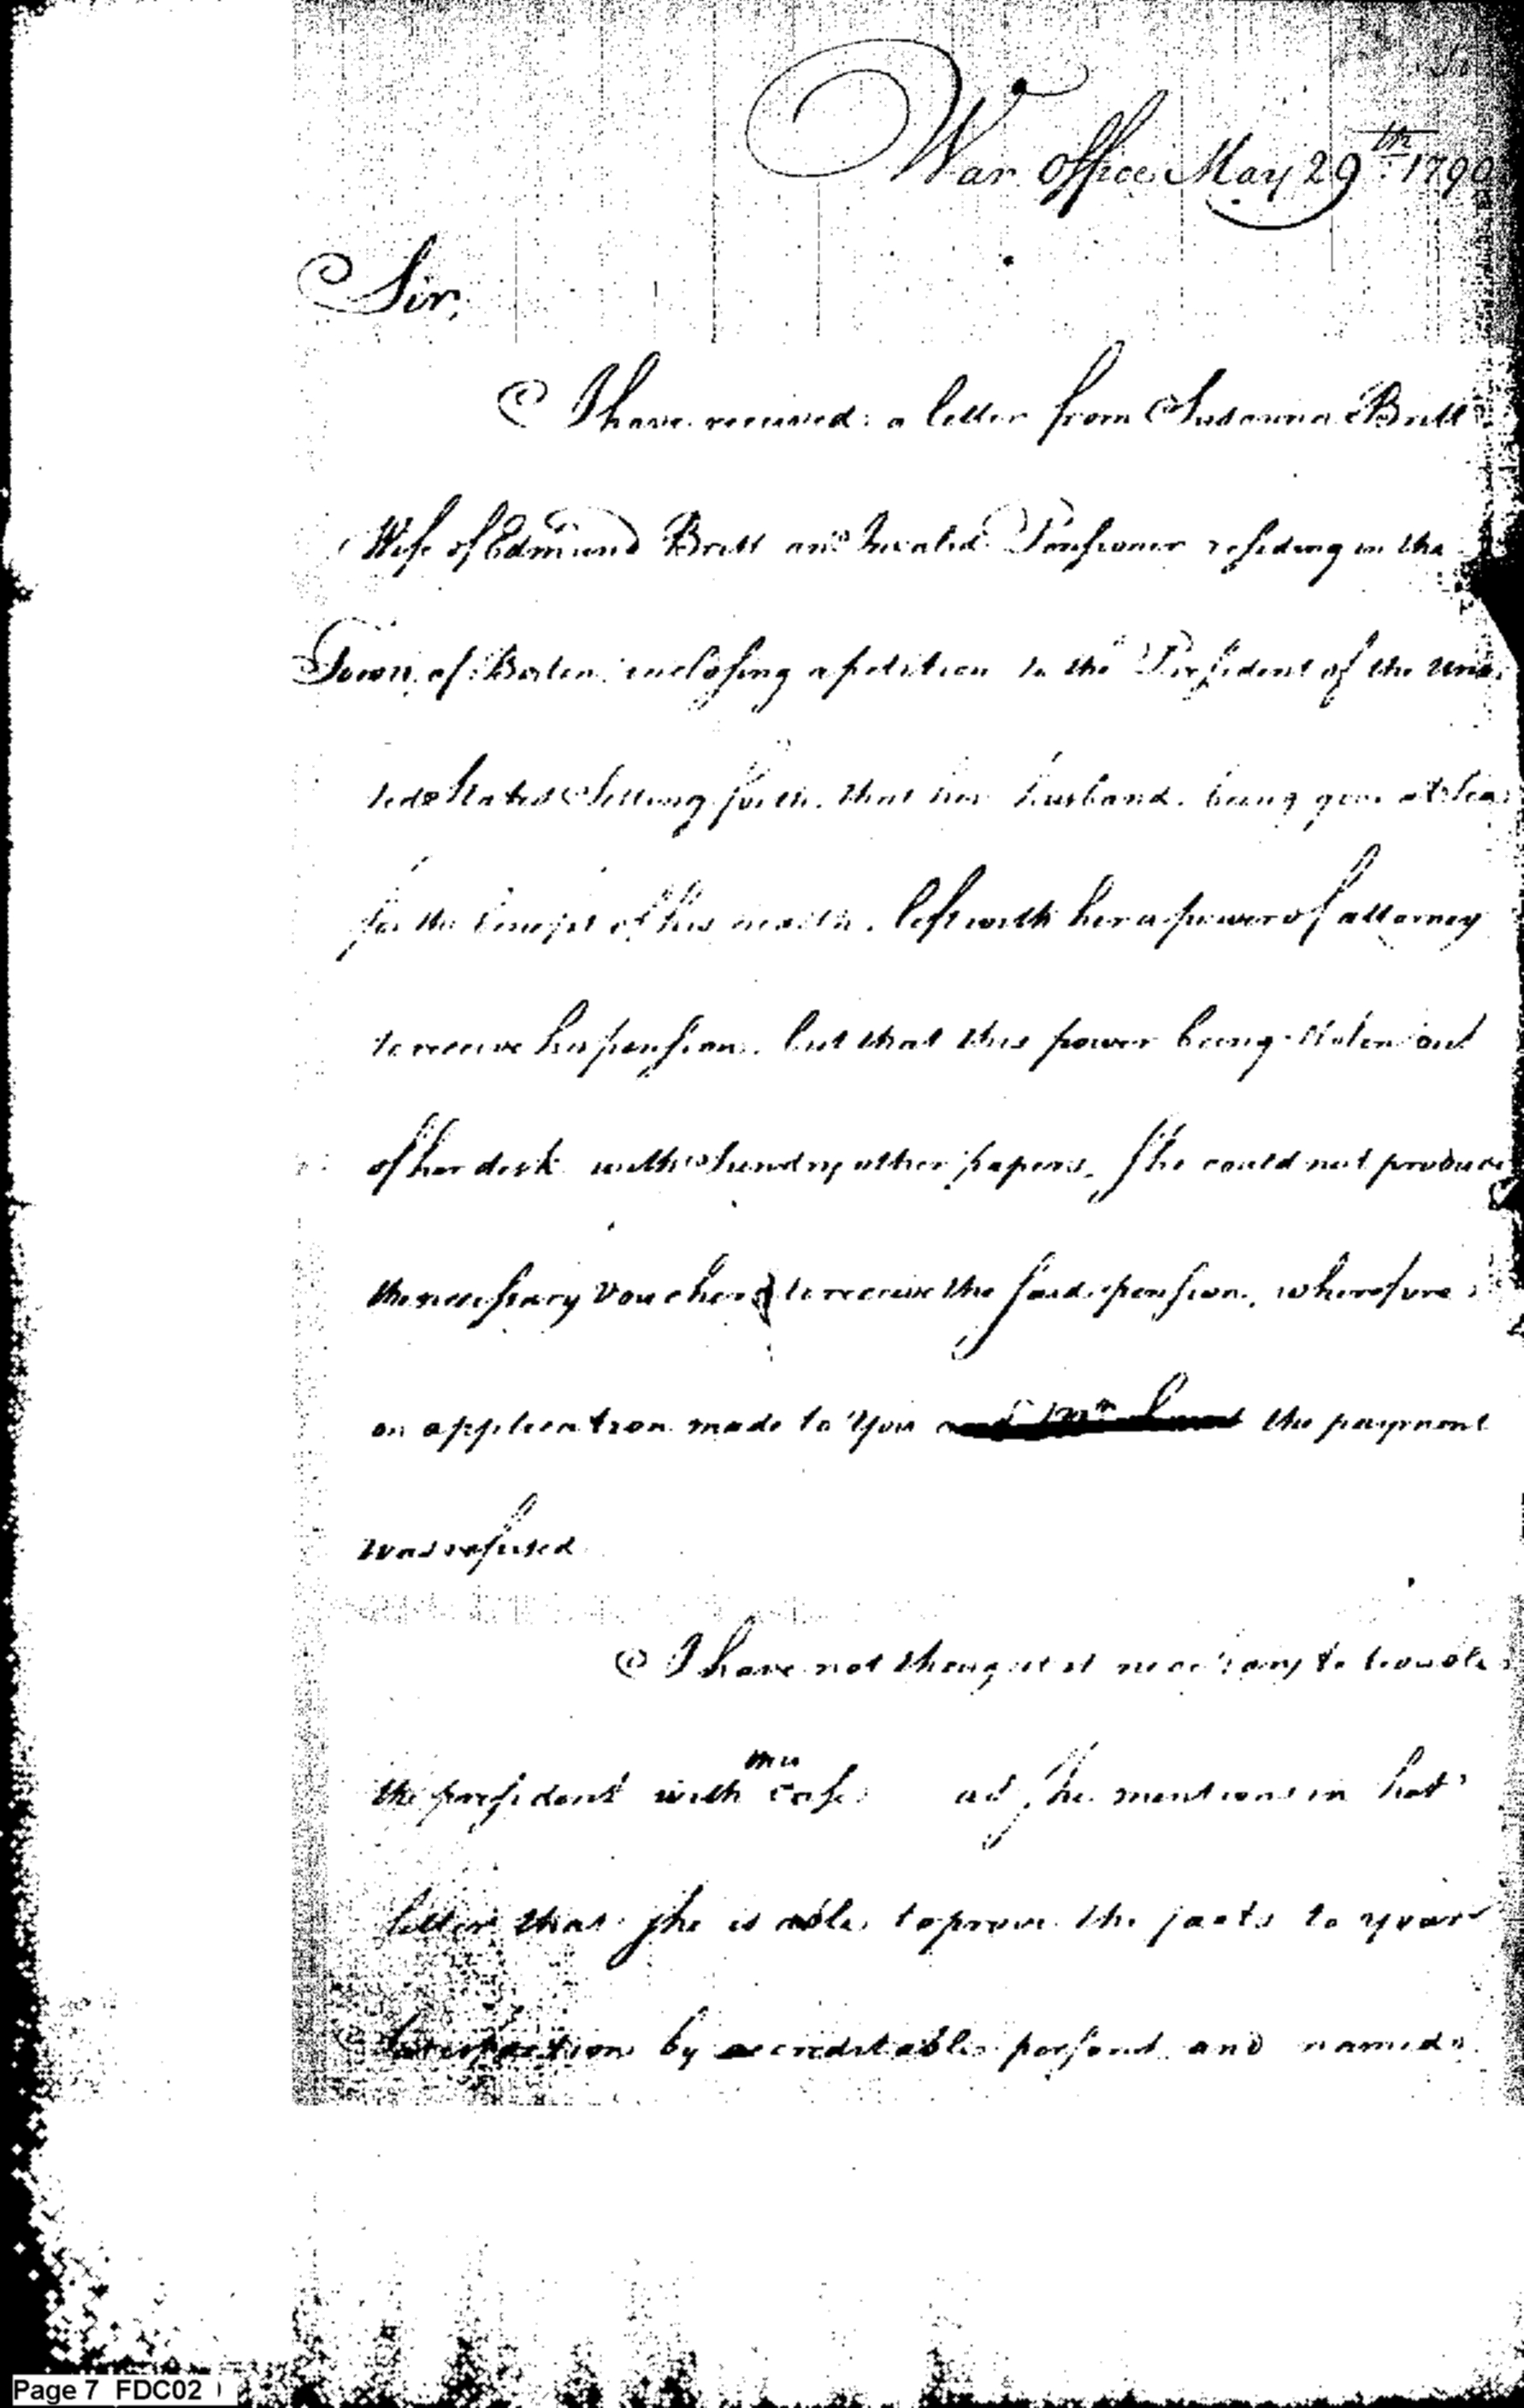 War Office May 29th 1790
Sir,
I have received a letter from Susanna Britt
Wife of Edmund Britt an Invalid Pensioner residing in the
Town of Boston inclosing a petition to the President of the Uni-
ted States Setting forth, that her husband being gone at Sea
for the benefit of his health, left with her a power of attorney
to receive his pension, but that this power being stolen out
of her desk with Sundry other papers, She could not produce
the necessary Vouchers to receive the said pension, wherefore
on application made to You the payment
was refused
I have not thought it necessary to trouble
the president with this case as she mentions in her
letter that she is able to prove the facts to your
Satisfaction by creditable persons and named
Page 7 FDC02